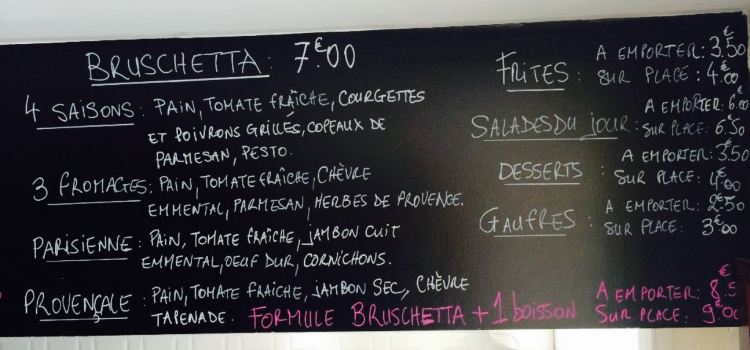 BRUSCHETTA : 7€00
4 SAISONS : PAIN, TOMATE FRAÎCHE, COURGETTES
ET POIVRONS GRILLÉS, COPEAUX DE
PARMESAN, PESTO.
3 FROMAGES : PAIN, TOMATE FRAÎCHE, CHÈVRE
EMMENTAL, PARMESAN, HERBES DE PROVENCE.
PARISIENNE : PAIN, TOMATE FRAÎCHE, JAMBON CUIT
EMMENTAL, OEUF DUR, CORNICHONS.
PROVENÇALE : PAIN, TOMATE FRAÎCHE, JAMBON SEC, CHÈVRE
TAPENADE.
FRITES : A EMPORTER : 3€50
SUR PLACE : 4€00
SALADES DU JOUR : A EMPORTER : 6€00
SUR PLACE : 6€50
DESSERTS : A EMPORTER : 3€50
SUR PLACE : 4€00
GAUFRES : A EMPORTER : 2€50
SUR PLACE : 3€00
FORMULE BRUSCHETTA + 1 boisson A EMPORTER : 8€5
SUR PLACE : 9€00